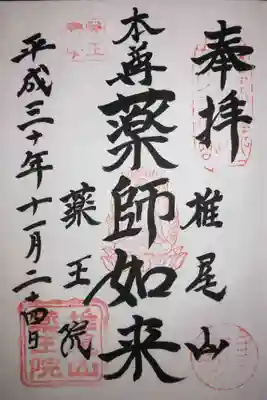 奉拝
椎尾山
本尊藥師如来
藥王院
平成三十年十一月二十四日